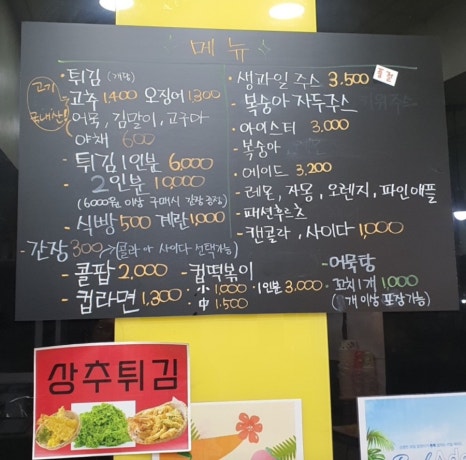 메뉴
· 튀김 (개당)
고기 국내산!
고추 1,400 오징어 1,300
어묵, 김말이, 고구마
야채 600
튀김 1인분 6,000
2인분 10,000
(6000원 이상 구매시 간장 증정)
- 식빵 500 계란 1,000
- 간장 300 → (콜라 or 사이다 선택가능)
- 콜팝 2,000
- 컵라면 1,300
- 컵떡볶이
小 1,000 · 1인분 3,000
中 1,500
· 생과일 주스 3,500 품절
- 복숭아 자두주스
· 아이스티 3,000
- 복숭아
· 에이드 3,200
- 레몬, 자몽, 오렌지, 파인애플
패션후르츠
- 캔콜라, 사이다 1,000
- 어묵탕
· 꼬치 1개 1,000
개 이상 포장가능)
상추튀김